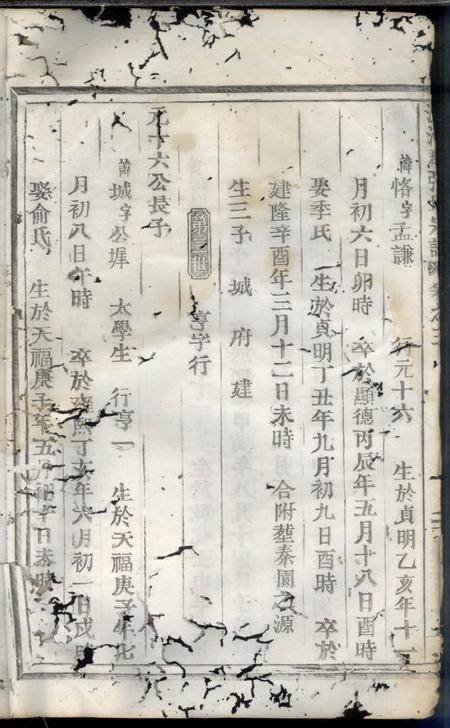 清河郡張氏宗譜 卷之三
諱恪字孟謙 行元十六 生於貞明乙亥年十一
月初六日卯時 卒於顯德丙辰年五月十八日酉時
娶季氏 生於貞明丁丑年九月初九日酉時 卒於
建隆辛酉年三月十二日未時 合附塟秦園之源
生三子 城 府 建
第三世 亨字行
元十六公長子
諱城字公墀 太學生 行亨一 生於天福庚子年七
月初八日午時 卒於雍熙丁亥年六月初一日戌時
娶俞氏 生於天福庚子年五月初十日未時